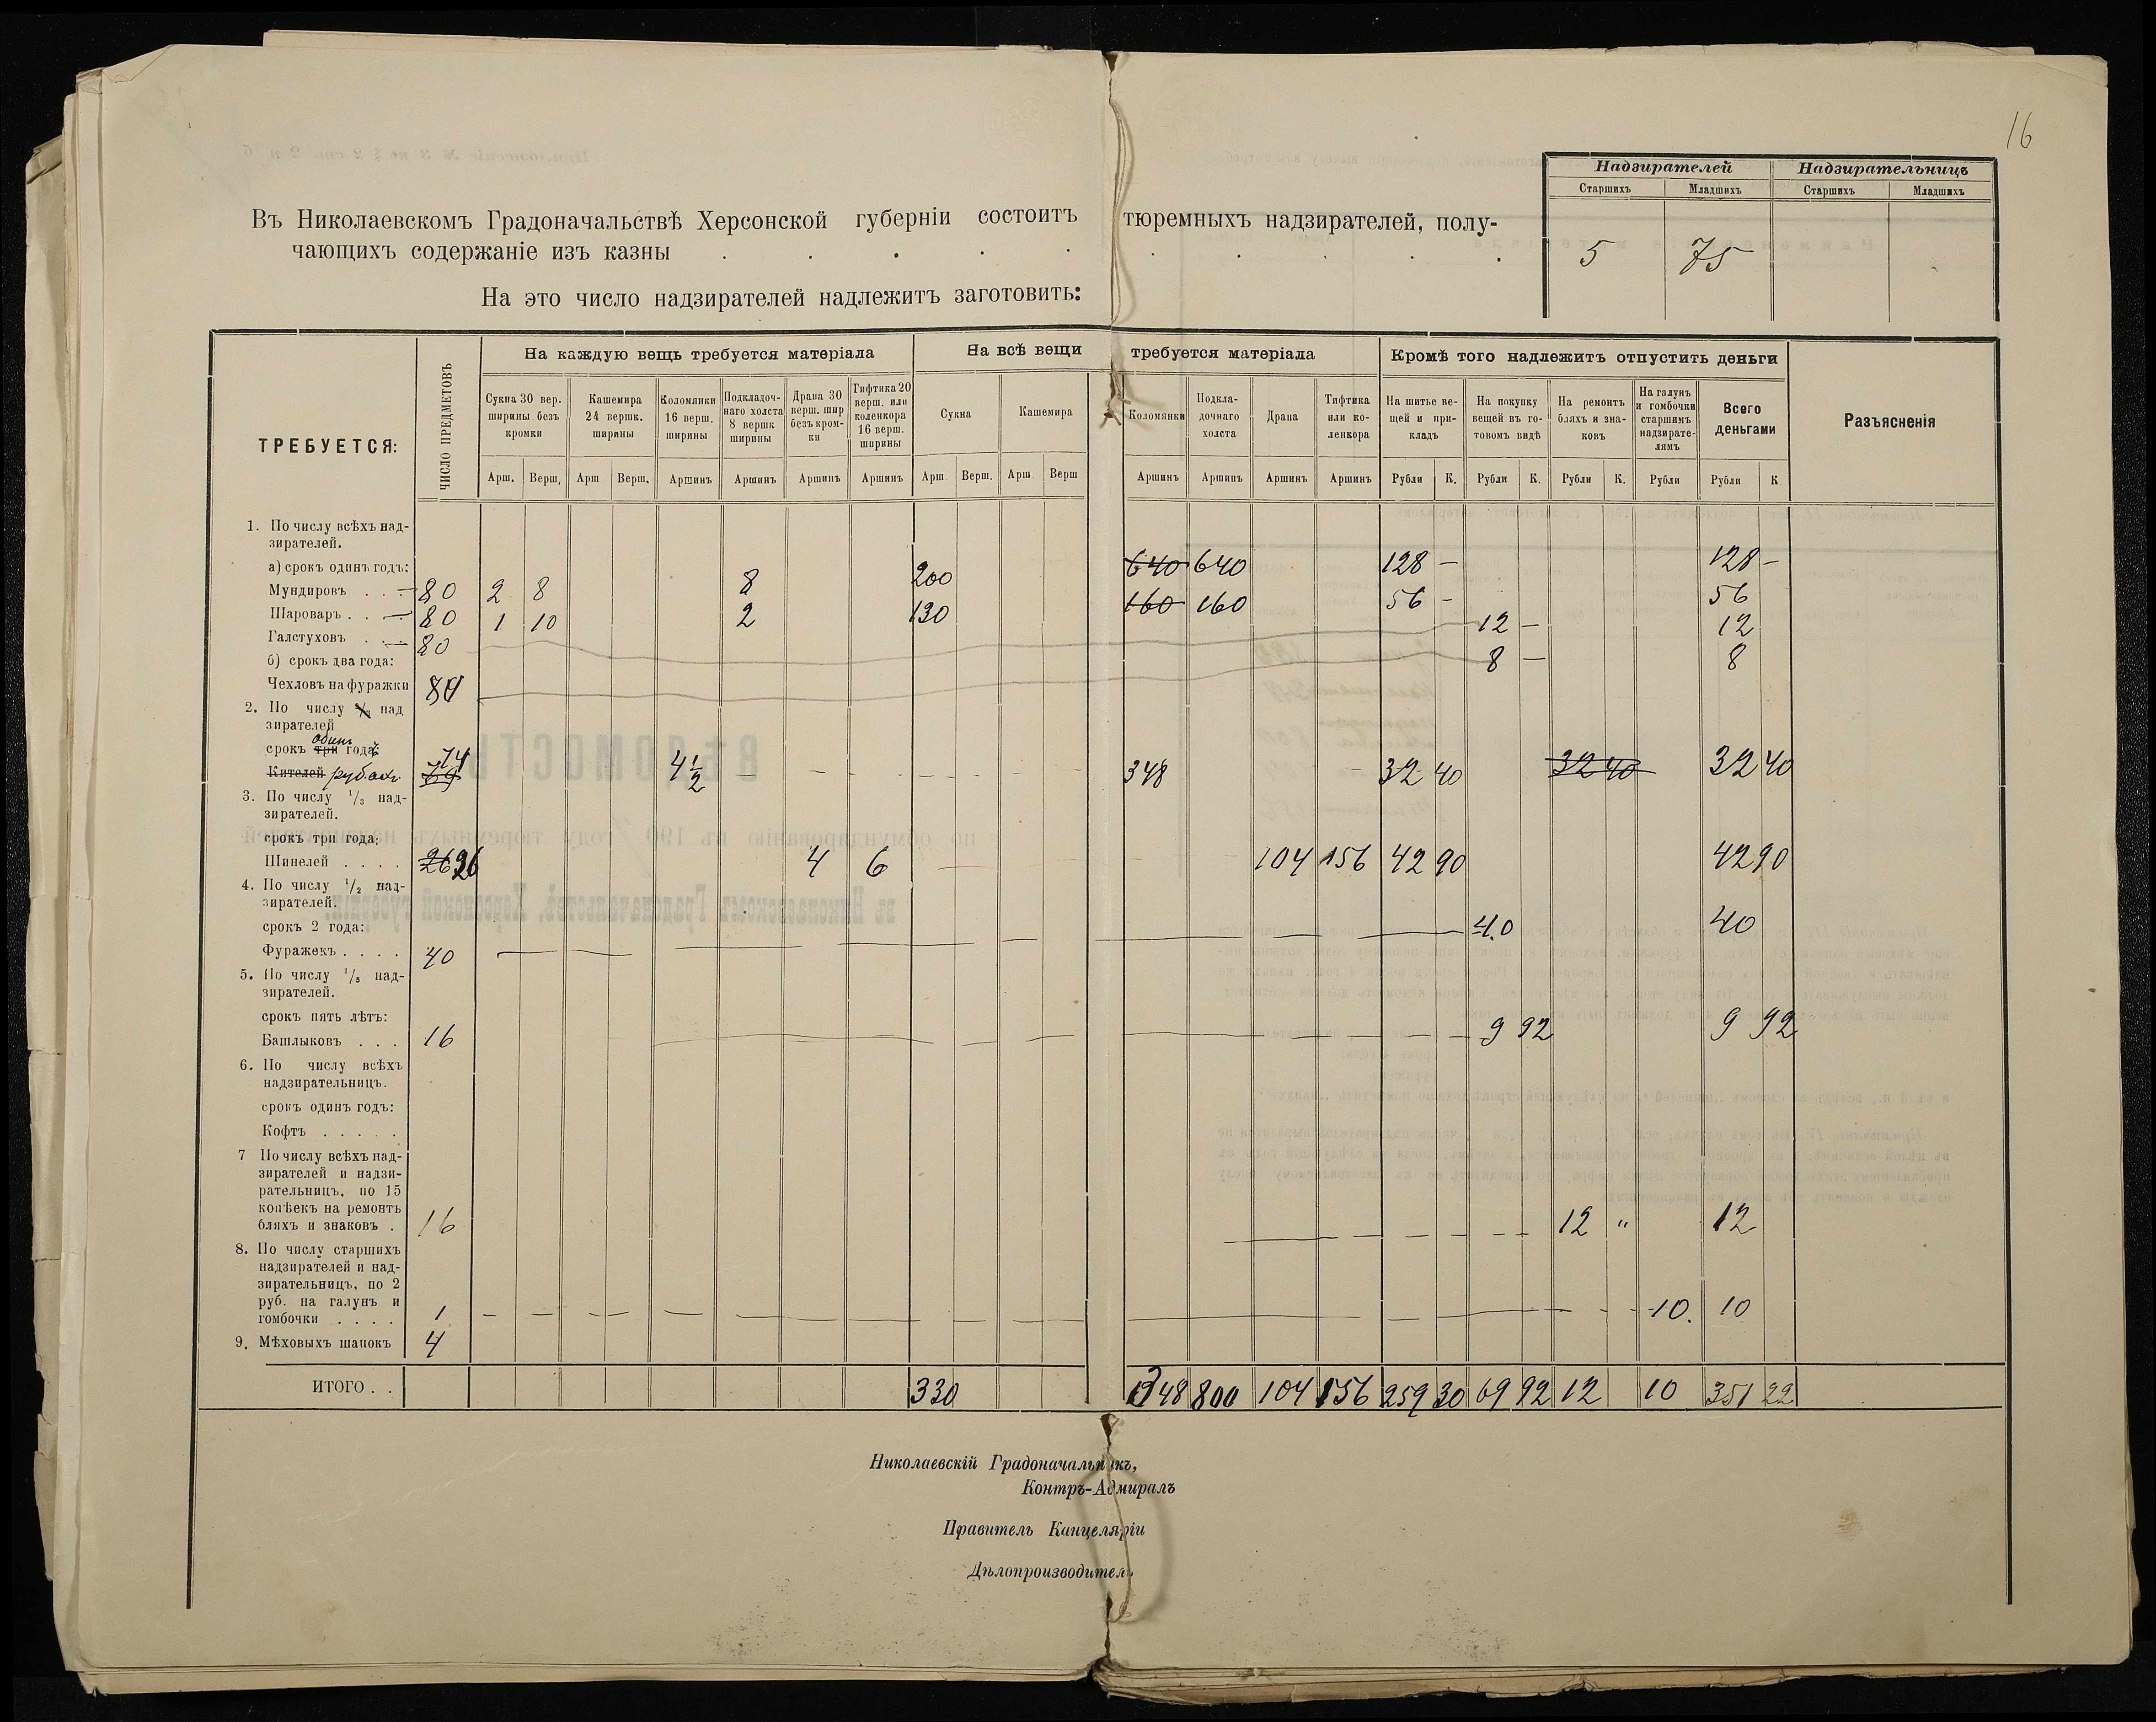 16
Надзирателей Надзирательницъ
Старшихъ Младшихъ Старшихъ Младшихъ
5 75
Въ Николаевскомъ Градоначальствѣ Херсонской губерніи состоитъ тюремныхъ надзирателей, полу-
чающихъ содержаніе изъ казны . . . . . . . . . .
На это число надзирателей надлежитъ заготовить:
ТРЕБУЕТСЯ:
ЧИСЛО ПРЕДМЕТОВЪ
На каждую вещь требуется матеріала
На всѣ вещи требуется матеріала
Кромѣ того надлежитъ отпустить деньги
Разъясненія
Сукна 30 вер. ширины безъ кромки
Кашемира 24 вершк. ширины
Коломянки 16 верш. ширины
Подкладоч-наго холста 8 вершк ширины
Драпа 30 верш. шир безъ кром-ки
Тифтика 20 верш. или коленкора 16 верш. ширины
Сукна
Кашемира
Коломянки
Подкла-дочнаго холста
Драпа
Тифтика или ко-ленкора
На шитье ве-щей и при-кладъ
На покупку вещей въ го-товомъ видѣ
На ремонтъ бляхъ и зна-ковъ
На галунъ и гомбочки старшимъ надзирате-лямъ
Всего деньгами
Арш. Верш. Арш Верш. Аршинъ Аршинъ Аршинъ Аршинъ Арш Верш. Арш Верш Аршинъ Аршинъ Аршинъ Аршинъ Рубли К. Рубли К. Рубли К. Рубли Рубли К
1. По числу всѣхъ над-
зирателей.
а) срокъ одинъ годъ:
Мундировъ . . — 80 2 8 8 200 640 640 128 — 128 —
Шароваръ . . — 80 1 10 2 130 160 160 56 — 56
Галстуховъ . . — 80 12 — 12
б) срокъ два года:
Чехловъ на фуражки 80 8 — 8
2. По числу ⅓ над
зирателей
срокъ три одинъ года:
Кителей рубахъ 74 4½ — — — — — — 348 — 32 40 32 40 32 40
3. По числу 1/3 над-
зирателей.
срокъ три года:
Шинелей . . . . 26 26 4 6 104 156 42 90 42 90
4. По числу 1/2 над-
зирателей.
срокъ 2 года:
Фуражекъ . . . . 40 40 40
5. По числу 1/5 над-
зирателей.
срокъ пять лѣтъ:
Башлыковъ . . . 16 9 92 9 92
6. По числу всѣхъ
надзирательницъ.
срокъ одинъ годъ:
Кофтъ . . . . .
7 По числу всѣхъ над-
зирателей и надзи-
рательницъ, по 15
копѣекъ на ремонтъ
бляхъ и знаковъ . 16 12 " 12
8. По числу старшихъ
надзирателей и над-
зирательницъ, по 2
руб. на галунъ и
гомбочки . . . . 1 10. 10
9. Мѣховыхъ шапокъ 4
ИТОГО . . 330 348 800 104 156 259 30 69 92 12 10 351 22
Николаевскій Градоначальникъ,
Контръ-Адмиралъ
Правитель Канцеляріи
Дѣлопроизводитель
ВѢДОМОСТЬ
по обмундированію въ 190 году тюремныхъ надзирателей
въ Николаевскомъ Градоначальствѣ, Херсонской губерніи.